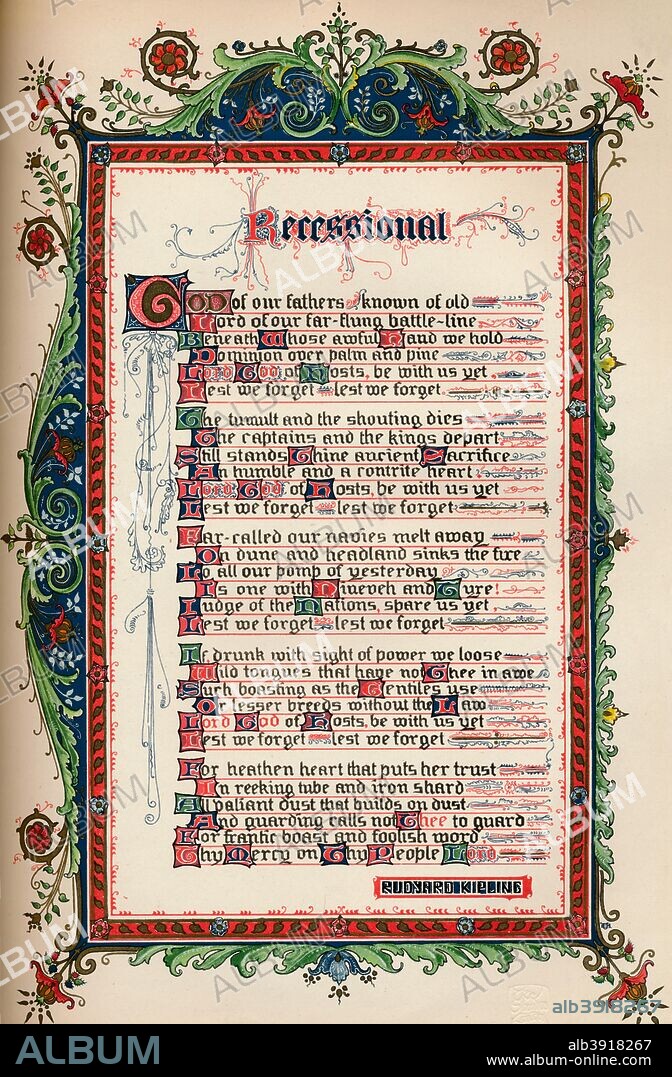 Recessional
God of our fathers known of old
Lord of our far-flung battle-line
Beneath Whose awful Hand we hold
Dominion over palm and pine
Lord God of Hosts, be with us yet
Lest we forget lest we forget
The tumult and the shouting dies
The captains and the kings depart
Still stands Thine ancient Sacrifice
An humble and a contrite heart
Lord God of Hosts, be with us yet
Lest we forget lest we forget
Far-called our navies melt away
On dune and headland sinks the fire
Lo all our pomp of yesterday
Is one with Nineveh and Tyre!
Judge of the Nations, spare us yet
Lest we forget lest we forget
If drunk with sight of power we loose
Wild tongues that have not Thee in awe
Such boasting as the Gentiles use
Or lesser breeds without the Law
Lord God of Hosts, be with us yet
Lest we forget lest we forget
For heathen heart that puts her trust
In reeking tube and iron shard
All valiant dust that builds on dust
And guarding calls not Thee to guard
For frantic boast and foolish word
Thy Mercy on Thy People Lord
RUDYARD KIPLING
alb3918267
ALBUM
alb3918267
www.album-online.com